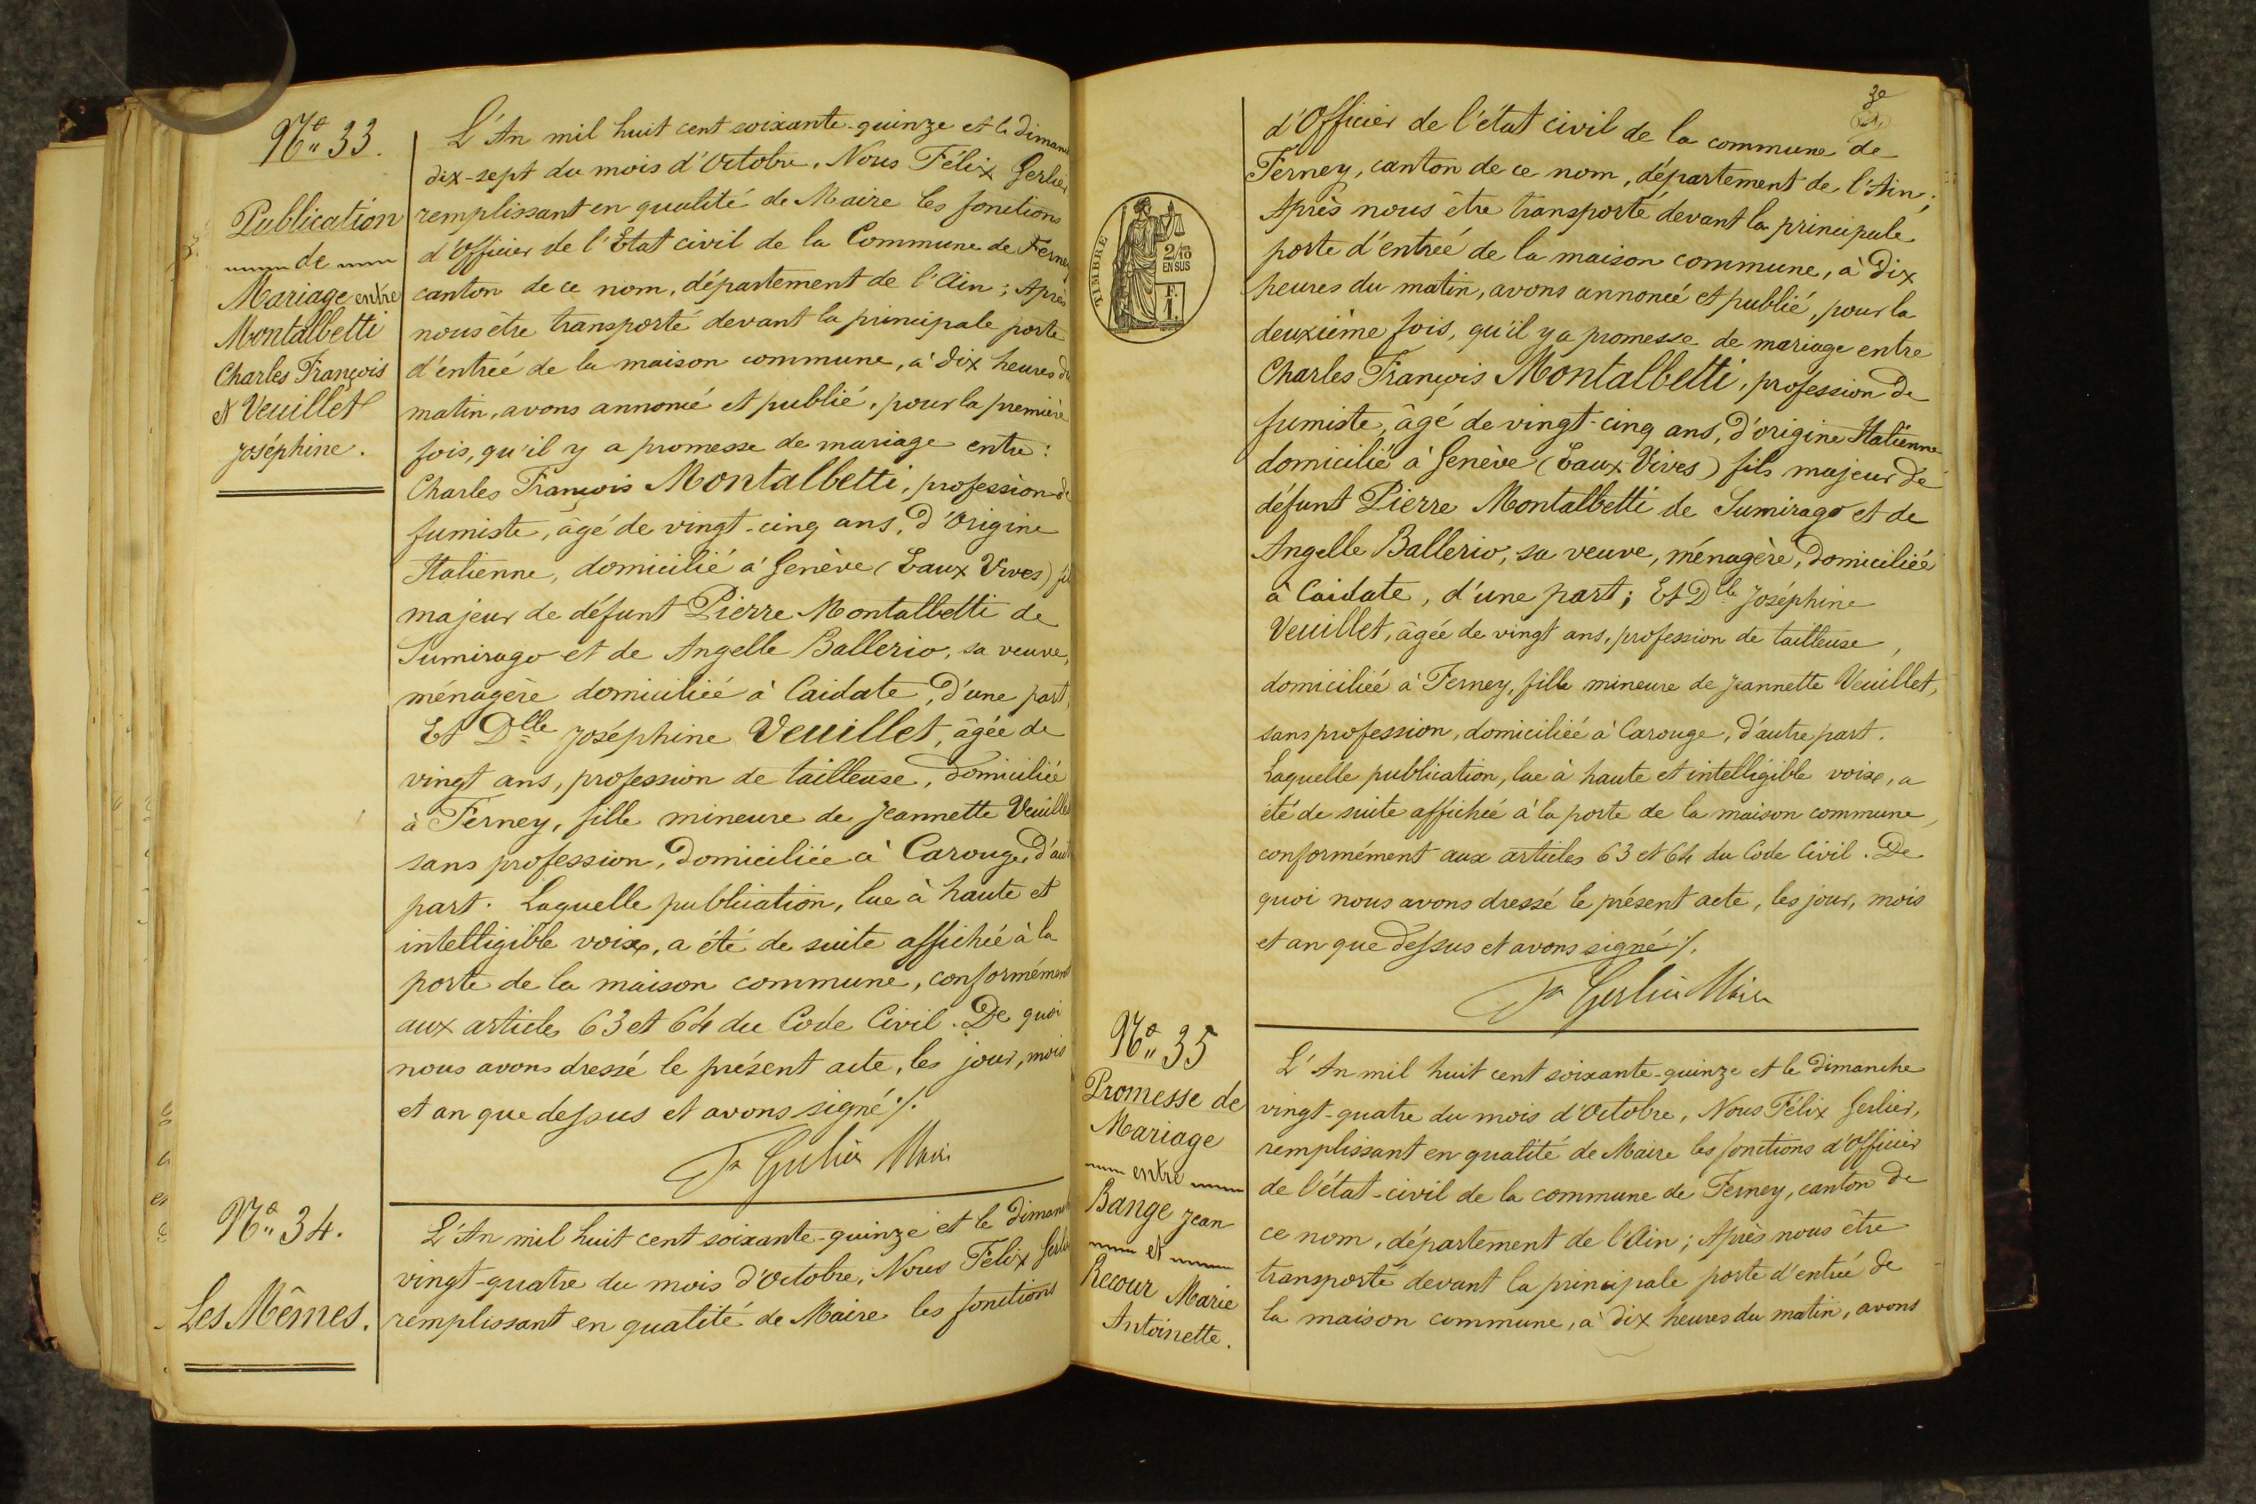 Nº 33.
Publication
de
Mariage entre
Montalbetti
Charles François
et Veuillet
Joséphine.
L'An mil huit cent soixante-quinze et le diman
dix-sept du mois d'Octobre, Nous Félix Gerlier,
remplissant en qualité de Maire les fonctions
d'Officier de l'Etat civil de la Commune de Ferney
canton de ce nom, département de l'Ain; Après
nous être transporté devant la principale porte
d'entrée de la maison commune, à dix heures du
matin, avons annoncé et publié, pour la première
fois, qu'il y a promesse de mariage entre:
Charles François Montalbetti, profession de
fumiste, âgé de vingt-cinq ans, d'Origine
Italienne, domicilié à Genève (Eaux Vives) fils
majeur de défunt Pierre Montalbetti de
Sumirago et de Angelle Ballerio, sa veuve,
ménagère domiciliée à Caidate, d'une part,
Et Dlle Joséphine Veuillet, âgée de
vingt ans, profession de tailleuse, domiciliée
à Ferney, fille mineure de Jeannette Veuillet
sans profession, domiciliée à Carouge, d'aut
part. Laquelle publication, lue à haute et
intelligible voix, a été de suite affichée à la
porte de la maison commune, conformément
aux articles 63 et 64 du Code Civil. De quoi
nous avons dressé le présent acte, les jour, mois
et an que dessus et avons signé ./.
Fx Gerlier Maire
Nº 34.
Les Mêmes.
L'An mil huit cent soixante-quinze et le dimanch
vingt-quatre du mois d'Octobre, Nous Félix Gerlier
remplissant en qualité de Maire les fonctions
30
d'Officier de l'état civil de la commune de
Ferney, canton de ce nom, département de l'Ain;
Après nous être transporté devant la principale
porte d'entrée de la maison commune, à dix
heures du matin, avons annoncé et publié, pour la
deuxième fois, qu'il y a promesse de mariage entre
Charles François Montalbetti, profession de
fumiste, âgé de vingt-cinq ans, d'origine Italienne
domicilié à Genève (Eaux Vives) fils majeur de
défunt Pierre Montalbetti de Sumirago et de
Angelle Ballerio, sa veuve, ménagère, domiciliée
à Caidate, d'une part; Et Dlle Joséphine
Veuillet, âgée de vingt ans, profession de tailleuse,
domiciliée à Ferney, fille mineure de Jeannette Veuillet,
sans profession, domiciliée à Carouge, d'autre part.
Laquelle publication, lue à haute et intelligible voix, a
été de suite affichée à la porte de la maison commune,
conformément aux articles 63 et 64 du Code Civil. De
quoi nous avons dressé le présent acte, les jour, mois
et an que dessus et avons signé ./.
Fx Gerlier Maire
TIMBRE
2/10
EN SUS
F.
1.
Nº 35
Promesse de
Mariage
entre
Bange Jean
et
Recour Marie
Antoinette.
L'An mil huit cent soixante-quinze et le dimanche
vingt-quatre du mois d'Octobre, Nous Félix Gerlier,
remplissant en qualité de Maire les fonctions d'Officier
de l'état-civil de la commune de Ferney, canton de
ce nom, département de l'Ain; Après nous être
transporté devant la principale porte d'entrée de
la maison commune, à dix heures du matin, avons